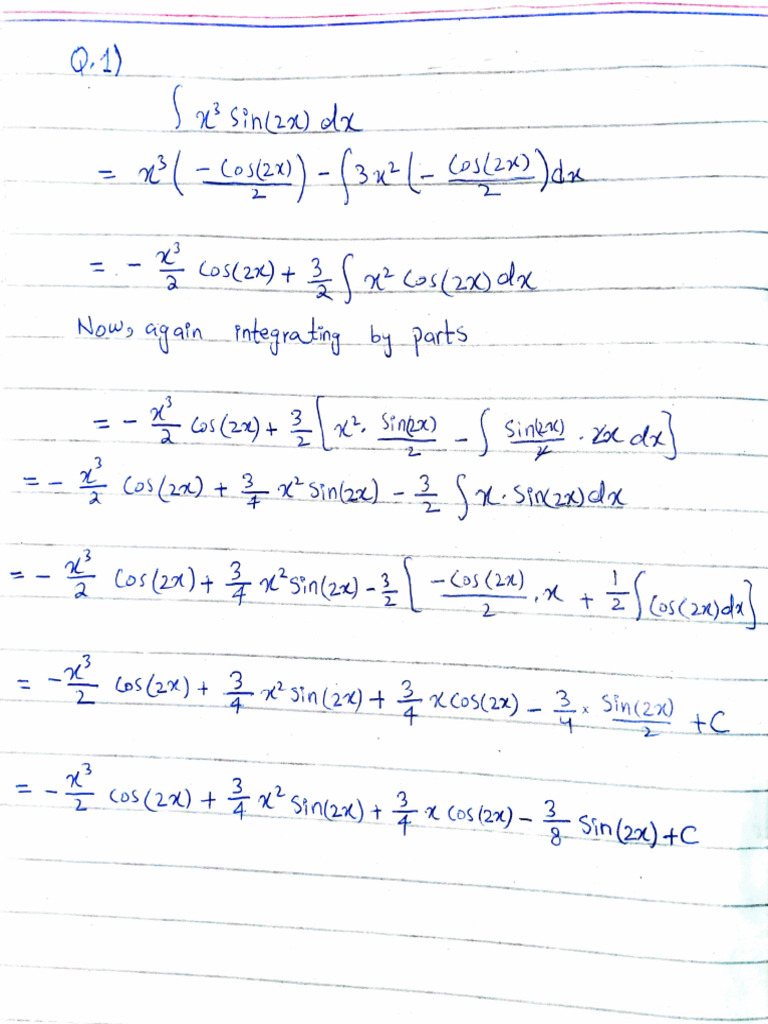 Q.1)
∫ x³ Sin(2x) dx
= x³ ( - Cos(2x)/2 ) - ∫ 3x² ( - Cos(2x)/2 ) dx
= - x³/2 Cos(2x) + 3/2 ∫ x² Cos(2x) dx
Now, again integrating by parts
= - x³/2 Cos(2x) + 3/2 [ x² · Sin(2x)/2 - ∫ Sin(2x)/2 · 2x dx ]
= - x³/2 Cos(2x) + 3/4 x² Sin(2x) - 3/2 ∫ x · Sin(2x) dx
= - x³/2 Cos(2x) + 3/4 x² Sin(2x) - 3/2 [ -Cos(2x)/2 · x + 1/2 ∫ Cos(2x) dx ]
= -x³/2 Cos(2x) + 3/4 x² Sin(2x) + 3/4 x Cos(2x) - 3/4 × Sin(2x)/2 + C
= - x³/2 Cos(2x) + 3/4 x² Sin(2x) + 3/4 x Cos(2x) - 3/8 Sin(2x) + C